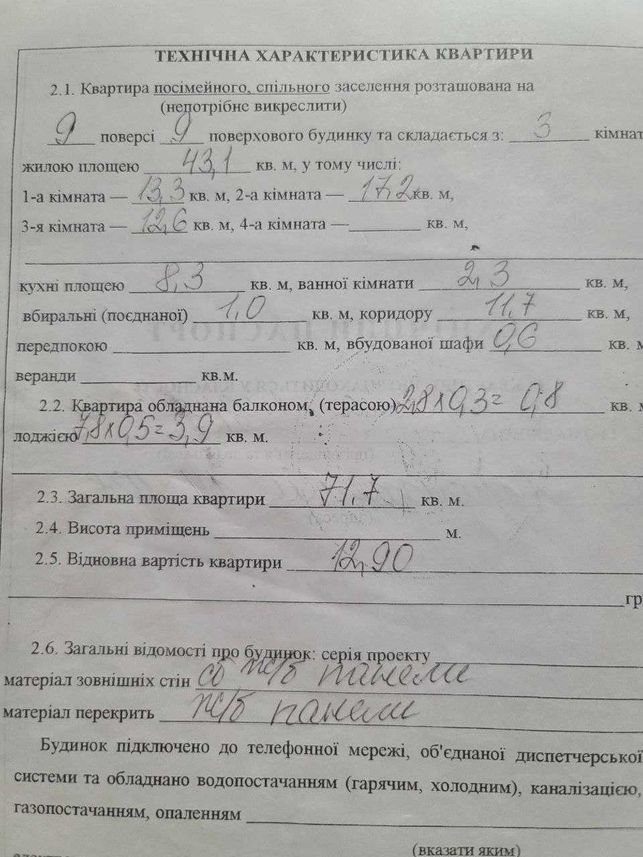 ТЕХНІЧНА ХАРАКТЕРИСТИКА КВАРТИРИ
2.1. Квартира посімейного, спільного заселення розташована на
(непотрібне викреслити)
9 поверсі 9 поверхового будинку та складається з: 3 кімнат
жилою площею 43,1 кв. м, у тому числі:
1-а кімната — 13,3 кв. м, 2-а кімната — 17,2 кв. м,
3-я кімната — 12,6 кв. м, 4-а кімната — кв. м,
кухні площею 8,3 кв. м, ванної кімнати 2,3 кв. м,
вбиральні (поєднаної) 1,0 кв. м, коридору 11,7 кв. м,
передпокою кв. м, вбудованої шафи 0,6 кв. м
веранди кв.м.
2.2. Квартира обладнана балконом, (терасою) 2,8х0,3= 0,8 кв. м
лоджією 7,8х0,5=3,9 кв. м.
2.3. Загальна площа квартири 71,7 кв. м.
2.4. Висота приміщень м.
2.5. Відновна вартість квартири 12,90
гр
2.6. Загальні відомості про будинок: серія проекту
матеріал зовнішніх стін сб ж/б панели
матеріал перекрить ж/б панели
Будинок підключено до телефонної мережі, об'єднаної диспетчерської
системи та обладнано водопостачанням (гарячим, холодним), каналізацією,
газопостачанням, опаленням
(вказати яким)